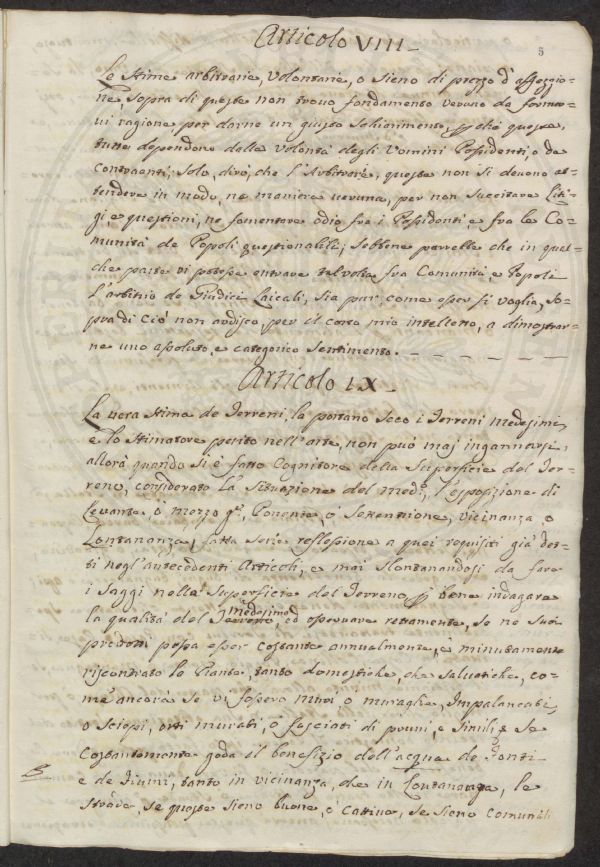 5
Articolo VIII
Le stime arbitrarie, Volontarie, o sieno di prezzo d'affezzio=
ne, sopra di queste non trovo fondamento veruno da formar=
vi ragione, per darne un giusto schiarimento, poiché queste,
tutte dependono della Volontà degli Uomini Possidenti, o de
Contraenti; solo dirò, che l'Arbitrarie, queste non si devono at=
tendere in modo, ne maniera veruna, per non suscitare Liti=
gi, e questioni, ne fomentare odio fra i Possidenti, e fra le Co=
munità de Popoli questionabili; sebbene parrebbe che in qual=
che parte vi potesse entrare talvolta fra Comunità, e Popoli
l'arbitrio de Giudici Laicali, sia pur, come esser si voglia, so=
pra di ciò non ardisco, per il corto mio intelletto, a dimostrar=
ne uno assoluto, e categorico sentimento.
Articolo IX
La vera stima de Terreni, la portano seco i Terreni medesimi,
e lo stimatore perito nell'arte, non può maj ingannarsi,
allorà quando si è fatto Cognitore della superficie del Ter=
reno, considerato la situazione del med:º, l'esposizione di
Levante, o mezzo g:º, Ponente, o Settentrione, vicinanza o
Lontananza, fatta seria reflessione a quei requisiti già det=
ti negl'antecedenti Articoli, e mai slontanandosi da fare
i saggi nella superficie del Terreno p bene indagare
la qualità del medesimo, ed osservare rettamente, se ne suoi
prodotti possa esser costante annualmente, e minutamente
riscontrato le Piante, tanto domestiche, che salvatiche, co=
me ancora se vi fossero muri o muraglie, Impalancati,
o sciepi, orti murati, o fasciati di pruni, e simili; e se
Costantemente goda il benefizio dell'acqua de Fonti
e de Fiumi, tanto in vicinanza, che in Lontananza, le
strade, se queste sieno buone, o cattive, se sieno comunali